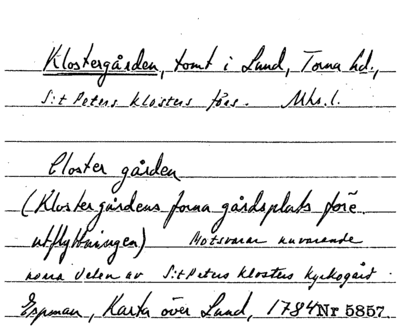 Klostergården, tomt i Lund, Torna hd.,
S:t Peters Klosters förs. Mhs. l.
Closter gården
(Klostergårdens forna gårdsplats före
utflyttningen) Motsvarar nuvarande
norra delen av S:t Peters Klosters kyrkogård.
Espman, Karta över Lund, 1784 Nr 5857